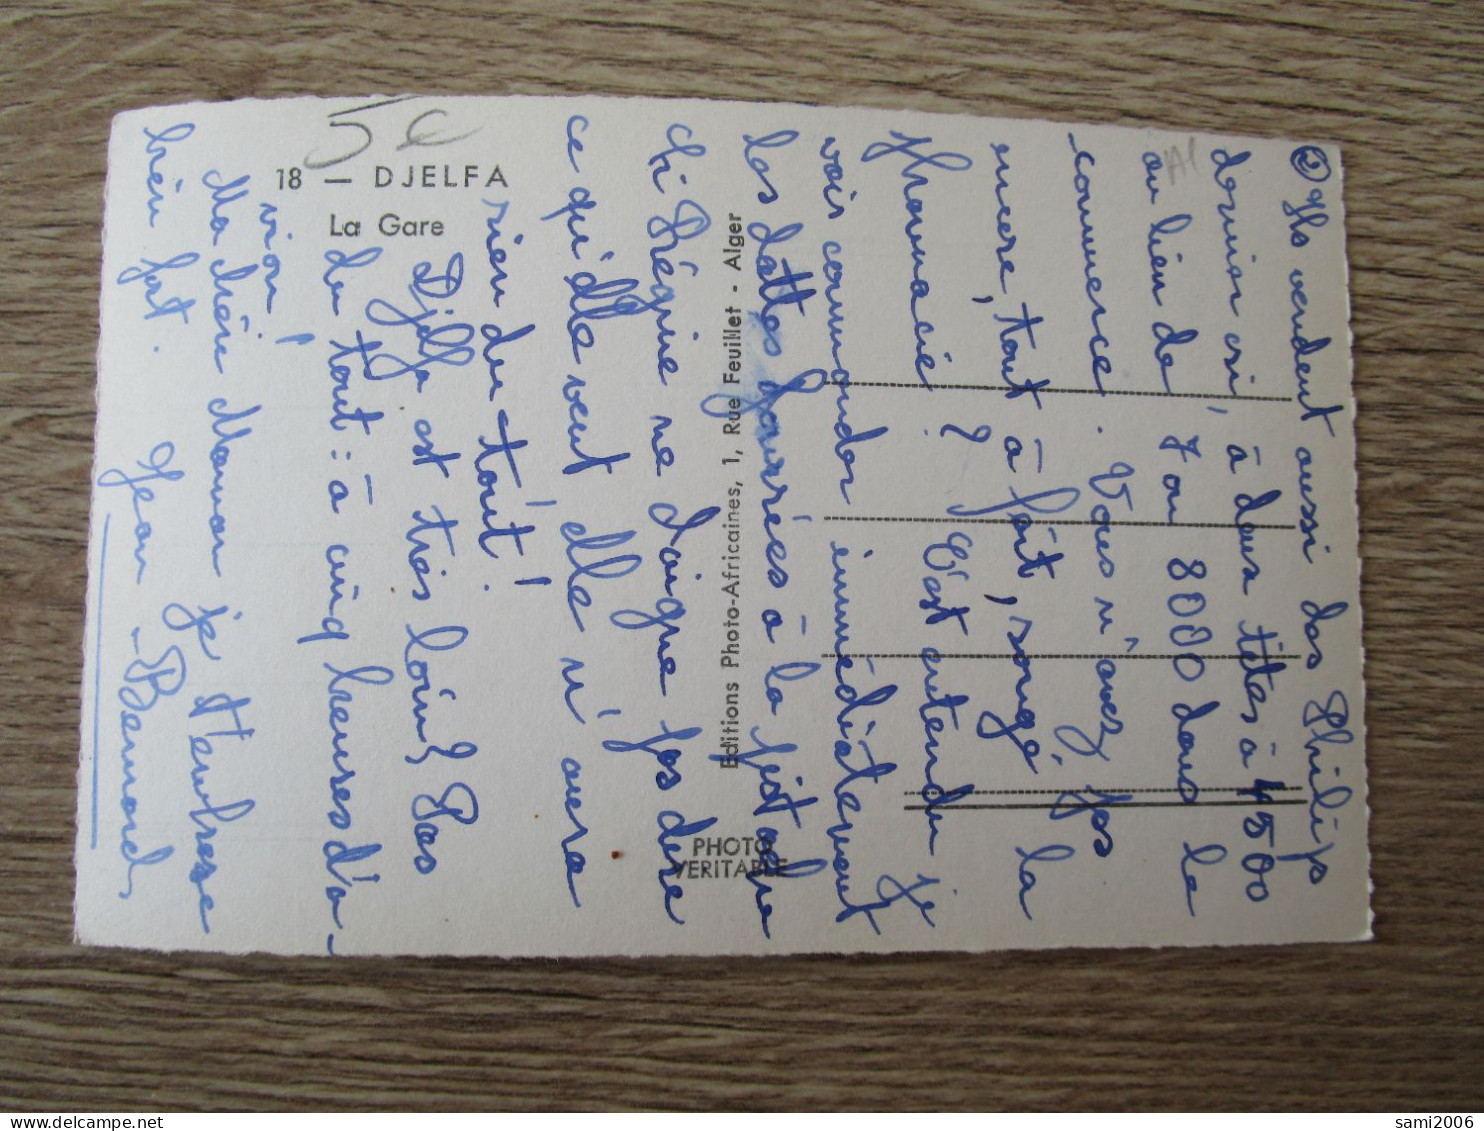 ② Ils vendent aussi des Philips
dernier cri, à deux têtes à 4500
au lieu de 7 ou 8000 dans le
commerce. Vous n'avez pas
muere, tout à fait, songé la
pharmacie ? C'est entendu je
vais commander immédiatement
les dattes fourrées à la pistache
si Régine ne daigne pas dire
ce qu'elle veut elle n'aura
rien du tout !
Djelfa est très loin ? Pas
du tout : à cinq heures d'a-
vion !
Ma chère Maman je t'embrasse
bien fort. Jean-Bernard,
18 — DJELFA
La Gare
5€
Al
Editions Photo-Africaines, 1, Rue Feuillet - Alger
PHOTO
VERITABLE
delcampe.net
sami2006